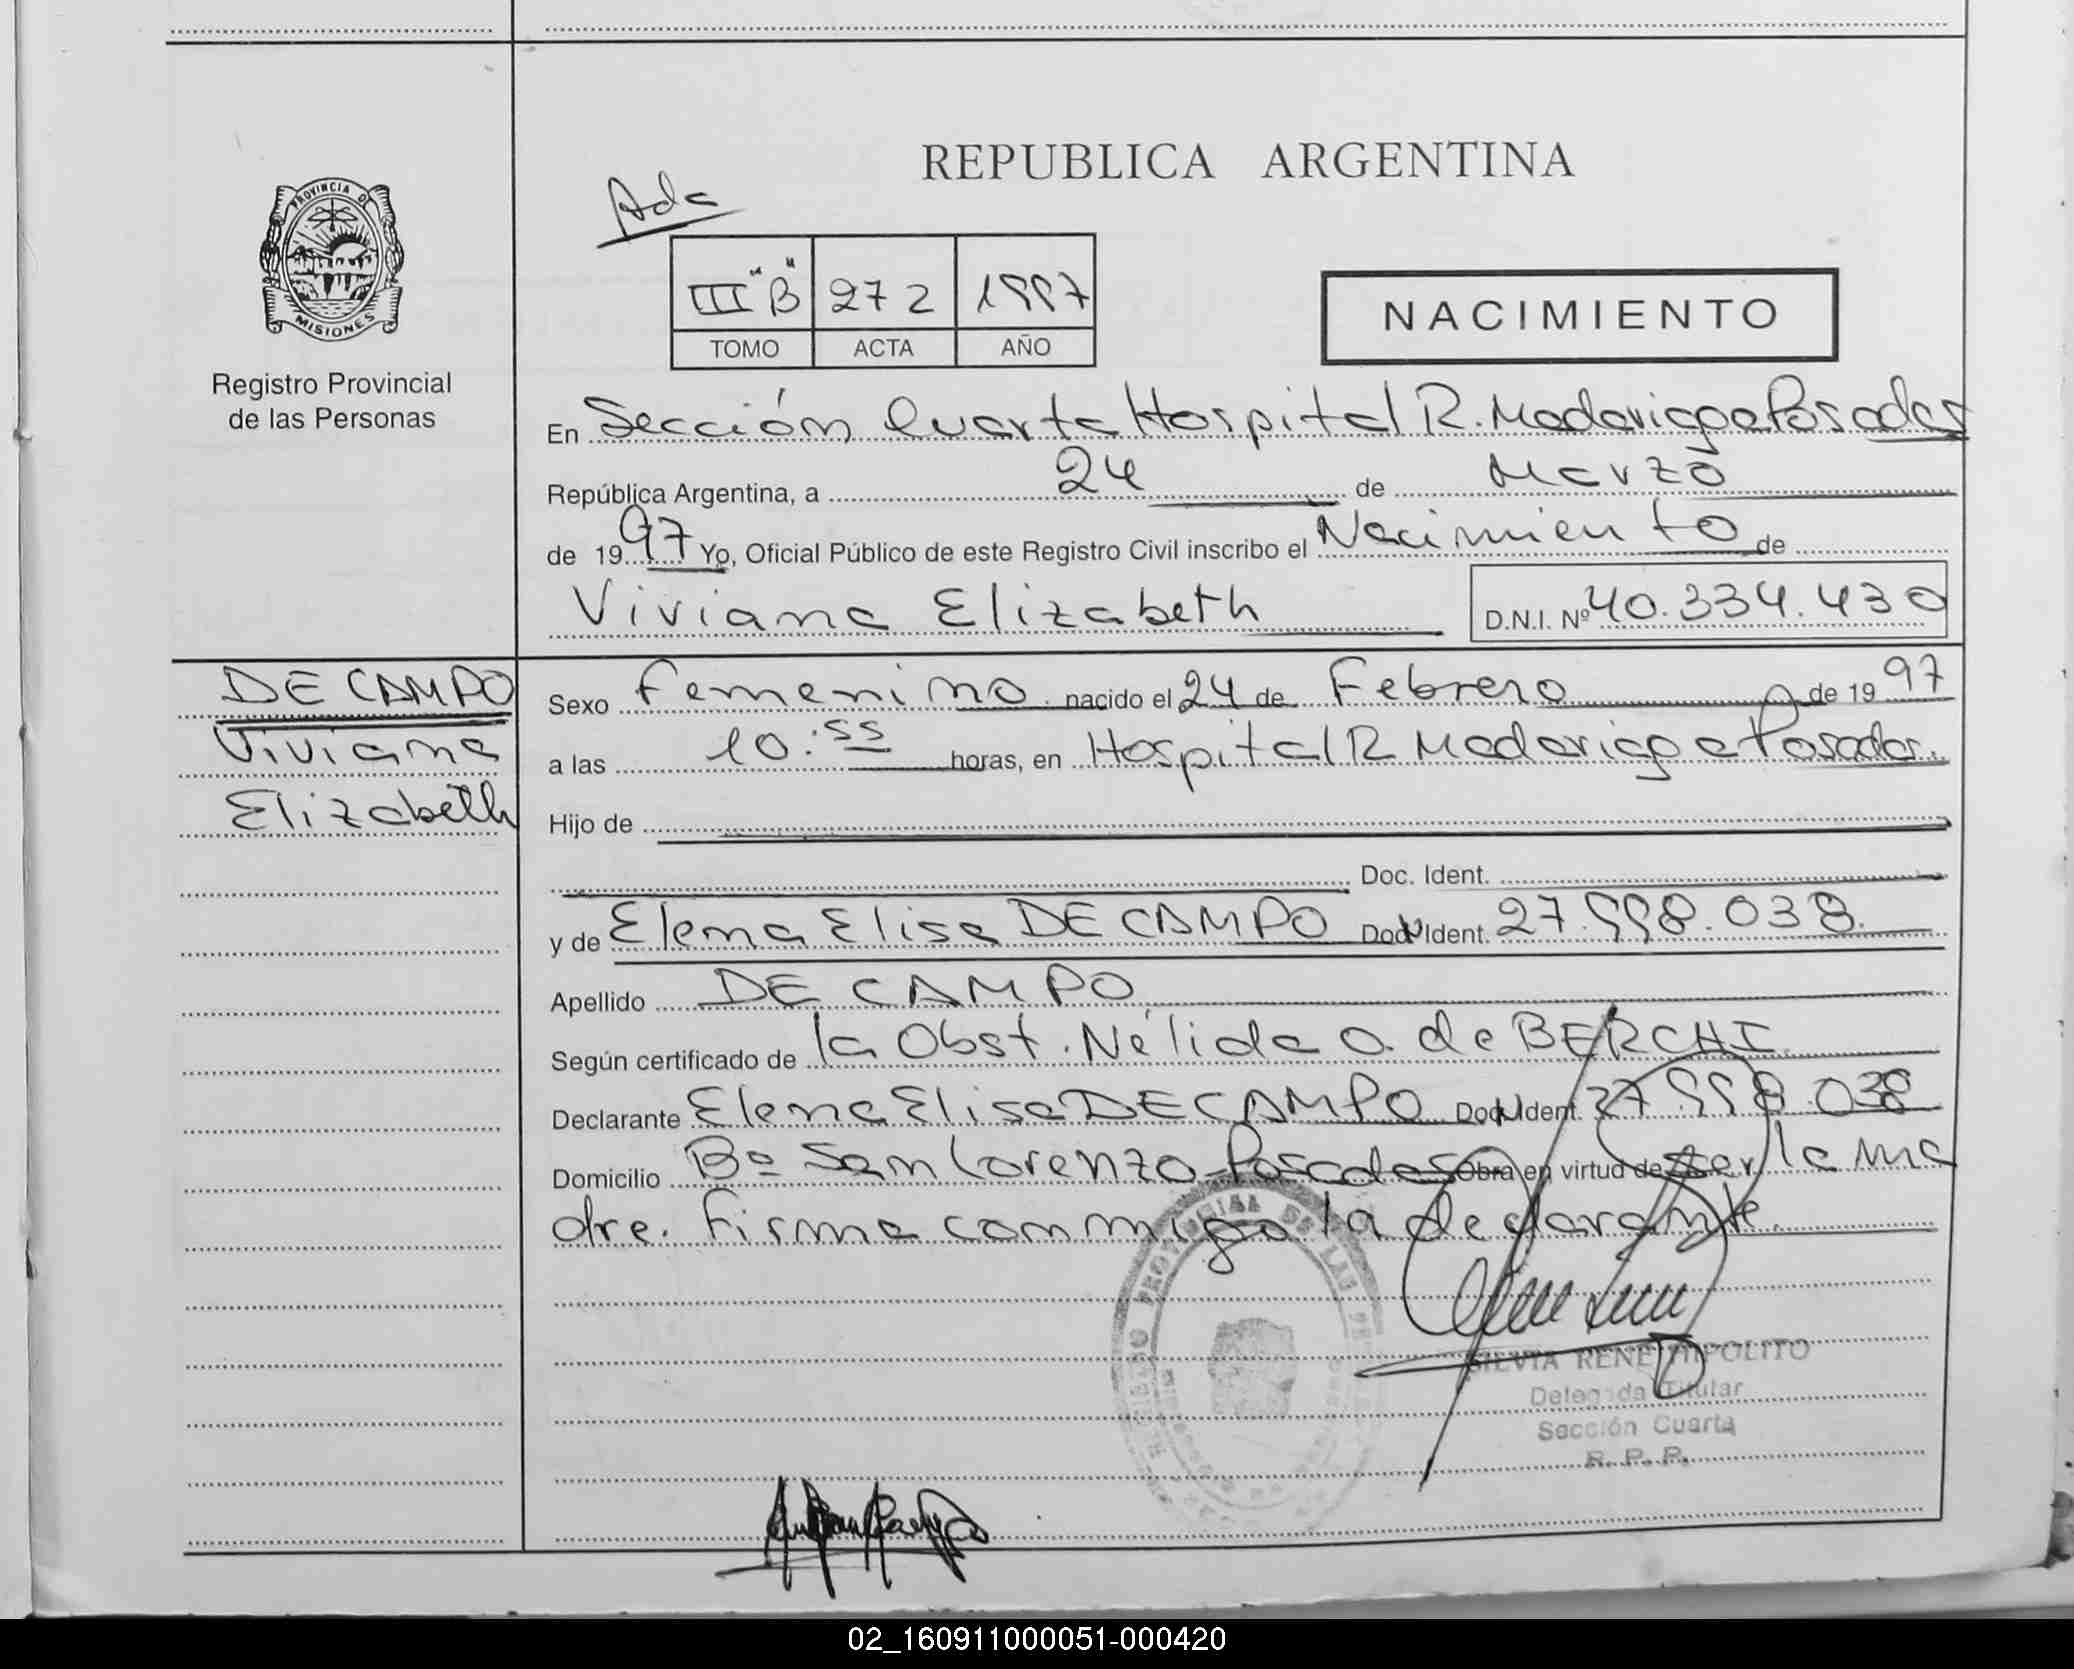 REPUBLICA ARGENTINA
Ada
PROVINCIA D
MISIONES
Registro Provincial
de las Personas
III "B" 272 1997
TOMO ACTA AÑO
NACIMIENTO
En Sección Cuarta Hospital R. Madariaga Posadas
República Argentina, a 24 de Marzo
de 1997 Yo, Oficial Público de este Registro Civil inscribo el Nacimiento de
Viviana Elizabeth D.N.I. Nº 40.334.430
DE CAMPO
Viviana
Elizabeth
Sexo Femenino nacido el 24 de Febrero de 1997
a las 10:55 horas, en Hospital R Madariaga Posadas.
Hijo de
Doc. Ident.
y de Elena Elisa DE CAMPO Doc. Ident. 27.998.038.
Apellido DE CAMPO
Según certificado de la Obst. Nélida O. de BERCHI
Declarante Elena Elisa DE CAMPO Doc. Ident. 27.998.038
Domicilio Bº San Lorenzo-Posadas Obra en virtud de ser la ma
dre. Firma conmigo la declarante.
REGISTRO PROVINCIAL DE LAS
SILVIA RENE HIPOLITO
Delegada Titular
Sección Cuarta
R. P. P.
02_160911000051-000420